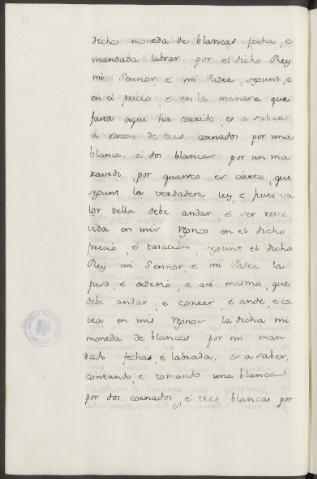 dicha moneda de blancas fecha, e
mandada labrar por el dicho Rey
mi Sennor e mi Padre, segunt, e
en el precio, e en la manera que
fasta aqui ha corrido, es a saber
a razon de tres cornados por una
blanca, e dos blancas por un ma
ravedi, por quanto es cierto, que
segunt la verdadera ley, e justo va
lor della debe andar, e ser rece
vida en mis Regnos en el dicho
precio, e tasacion, segunt el dicho
Rey mi Sennor e mi Padre la
puso, e ordenó, e asi mismo, que
debe andar, e correr, e ande, e co
rra en mis Regnos la dicha mi
moneda de blancas por mi man
dado fechas, e labrada, es a saber,
contando, e tomando una blanca
por dos cornados, e tres blancas por